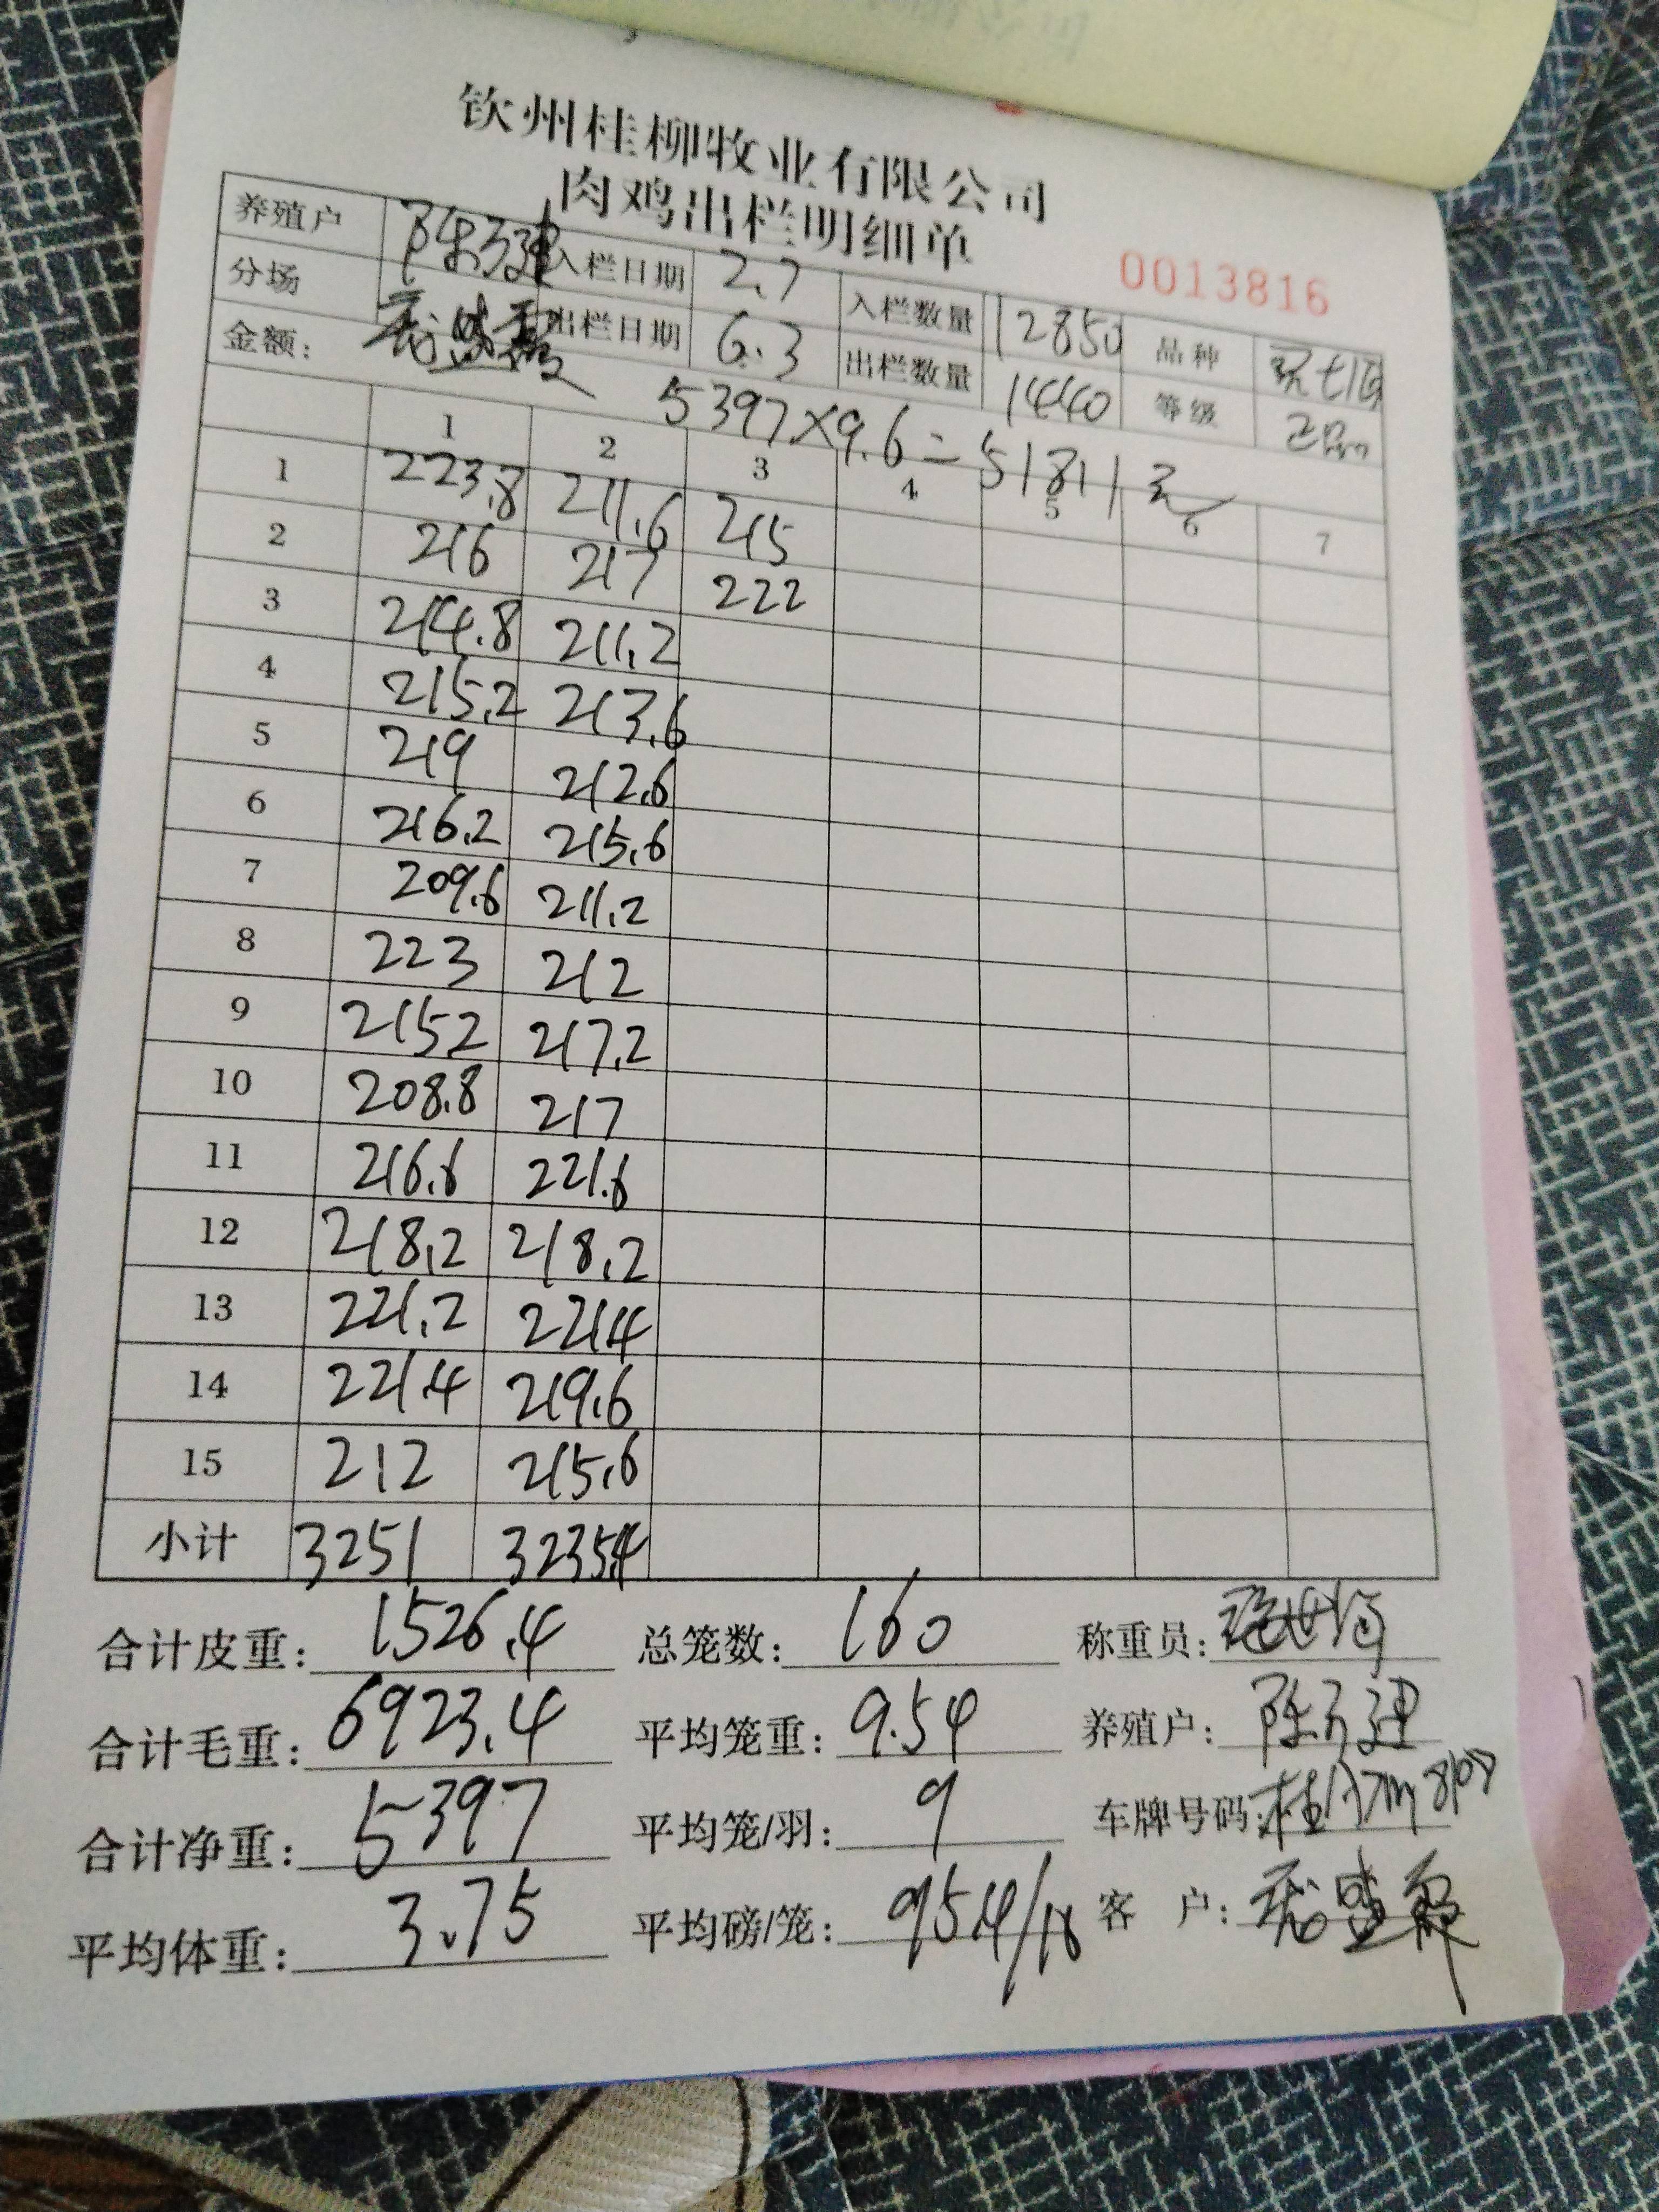 钦州桂柳牧业有限公司
肉鸡出栏明细单
0013816
养殖户 入栏日期 2.7 入栏数量 12850 品种
分场 出栏日期 6.3 出栏数量 1440 等级 正品
金额: 5397×9.6=51811元
1 2 3 4 5 6 7
1 223.8 211.6 215
2 216 217 222
3 214.8 211.2
4 215.2 213.6
5 219 212.6
6 216.2 215.6
7 209.6 211.2
8 223 212
9 2152 217.2
10 208.8 217
11 216.6 221.6
12 218.2 218.2
13 221.2 221.4
14 221.4 219.6
15 212 215.6
小计 3251 3235.4
合计皮重: 1526.4 总笼数: 160 称重员:
合计毛重: 6923.4 平均笼重: 9.54 养殖户:
合计净重: 5397 平均笼/羽: 9 车牌号码:
平均体重: 3.75 平均磅/笼: 95.4/ 客户: